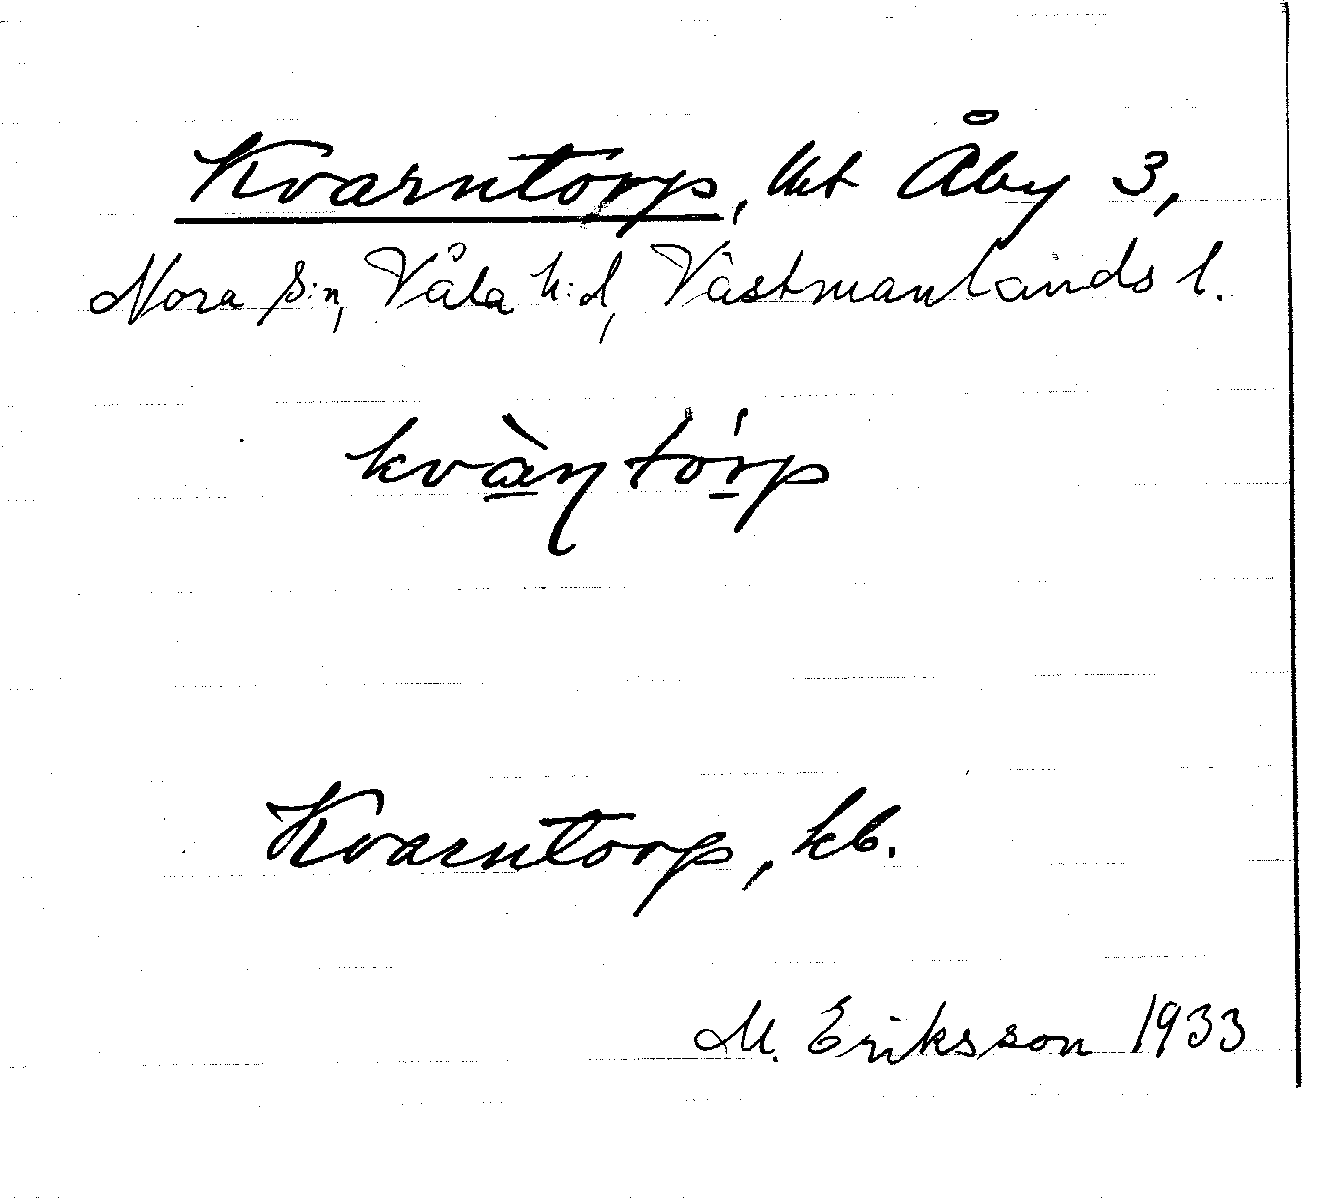 Kvarntorp, lht Åby 3,
Nora s:n, Våla h:d, Västmanlands l.
kvàn̩tórp
Kvarntorp, kb.
M. Eriksson 1933